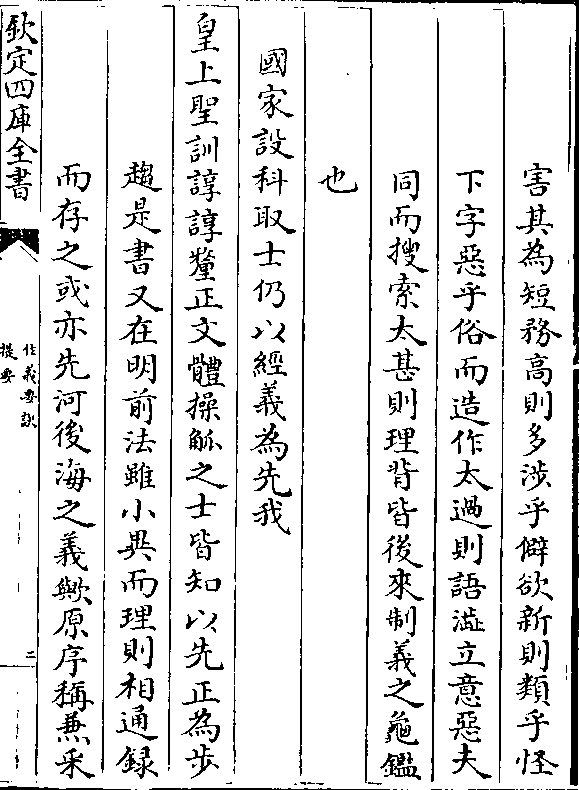 害其為短務高則多涉乎僻欲新則類乎怪
下字惡乎俗而造作太過則語澁立意惡夫
同而搜索太甚則理背皆後來制義之龜鑑
也
國家設科取士仍以經義為先我
皇上聖訓諄諄釐正文體操觚之士皆知以先正為步
趨是書又在明前法雖小異而理則相通録
而存之或亦先河後海之義歟原序稱兼采
欽定四庫全書
作義要訣
提要
二